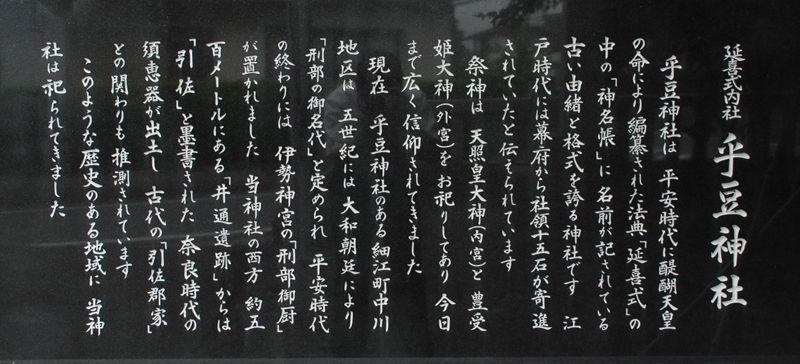 延喜式内社 乎豆神社
乎豆神社は 平安時代に醍醐天皇
の命により編纂された法典「延喜式」の
中の「神名帳」に名前が記されている
古い由緒と格式を誇る神社です 江
戸時代には幕府から社領十五石が寄進
されていたと伝えられています
祭神は 天照皇大神(内宮)と 豊受
姫大神(外宮)をお祀りしてあり 今日
まで広く信仰されてきました
現在 乎豆神社のある細江町中川
地区は 五世紀には大和朝廷により
「刑部の御名代」と定められ 平安時代
の終わりには 伊勢神宮の「刑部御厨」
が置かれました 当神社の西方 約五
百メートルにある「井通遺跡」からは
「引佐」と墨書された 奈良時代の
須恵器が出土し 古代の「引佐郡家」
との関わりも 推測されています
このような歴史のある地域に 当神
社は祀られてきました